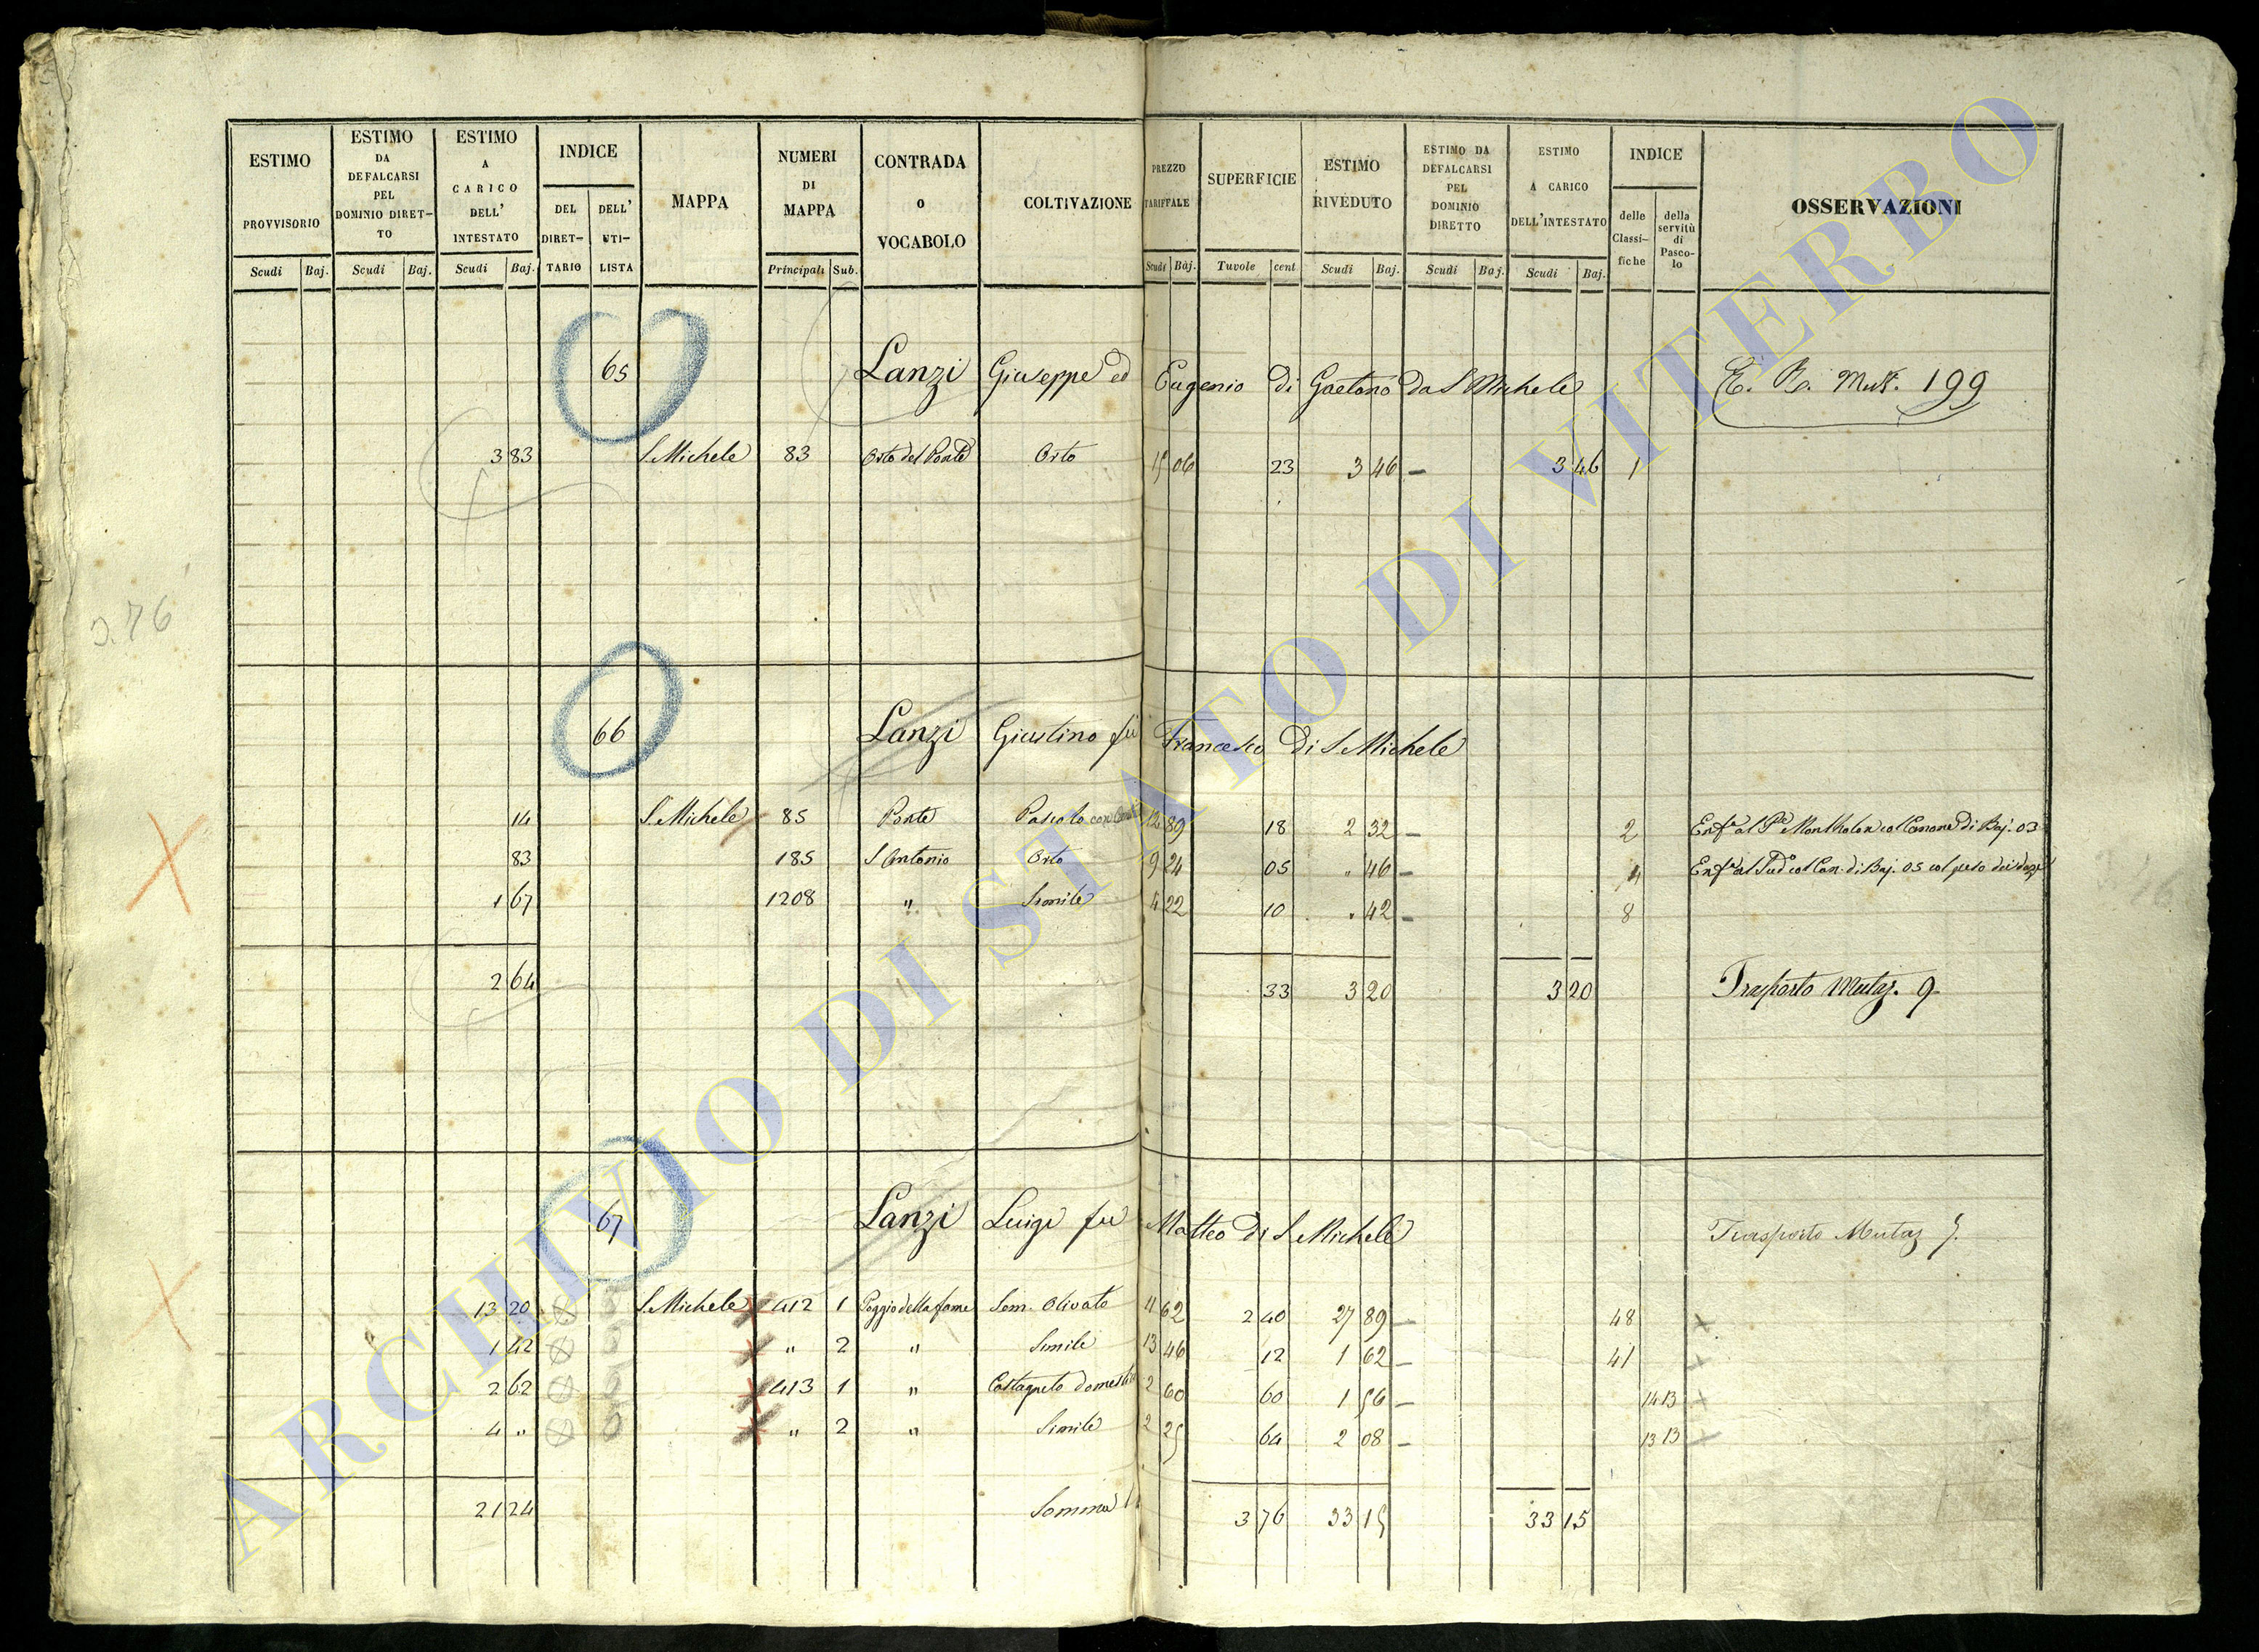 ESTIMO PROVVISORIO
Scudi Baj.
ESTIMO DA DEFALCARSI PEL DOMINIO DIRET-TO
Scudi Baj.
ESTIMO A CARICO DELL' INTESTATO
Scudi Baj.
INDICE
DEL DIRET-TARIO
DELL' UTI-LISTA
MAPPA
NUMERI DI MAPPA
Principali Sub.
CONTRADA O VOCABOLO
COLTIVAZIONE
PREZZO TARIFFALE
Scudi Baj.
SUPERFICIE
Tavole cent
ESTIMO RIVEDUTO
Scudi Baj.
ESTIMO DA DEFALCARSI PEL DOMINIO DIRETTO
Scudi Baj.
ESTIMO A CARICO DELL'INTESTATO
Scudi Baj.
INDICE
delle Classi-fiche
della servitù di Pasco-lo
OSSERVAZIONI
65 Lanzi Giuseppe ed Eugenio di Gaetano da S Michele 199
3 83 S. Michele 83 Orto del Ponte Orto 15 06 23 3 46 — 3 46 1
3.76
66 Lanzi Giustino fu Francesco di S Michele
14 S. Michele 85 Ponte Pascolo 12 89 18 2 32 — 2 col Canone di Baj. 03
83 185 S Antonio Orto 9 24 05 " 46 — 4 col Can. di Baj. 05 col peso dei dazj
1 67 1208 " Simile 4 22 10 " 42 — 8
2 64 33 3 20 3 20 Trasporto Mutaz. 9
67 Lanzi Luigi fu Matteo di S Michele Trasporto Mutaz 5.
13 20 S. Michele 412 1 Poggio della fame Sem. Olivato 11 62 2 40 27 89 — 48
1 42 " 2 " Simile 13 46 12 1 62 — 41
2 62 413 1 " Castagneto domestico 2 60 60 1 56 — 14 13
4 " " 2 " Simile 2 25 64 2 08 — 13 13
21 24 Somma 3 76 33 15 33 15
ARCHIVIO DI STATO DI VITERBO